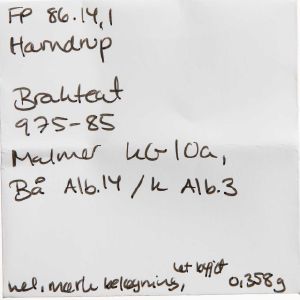 FP 86.14,1
Harndrup
Brakteat
975-85
Malmer KG10a,
Bå Alb.14 / k Alb.3
hel, mørk belægning, let bøjet 0,358g